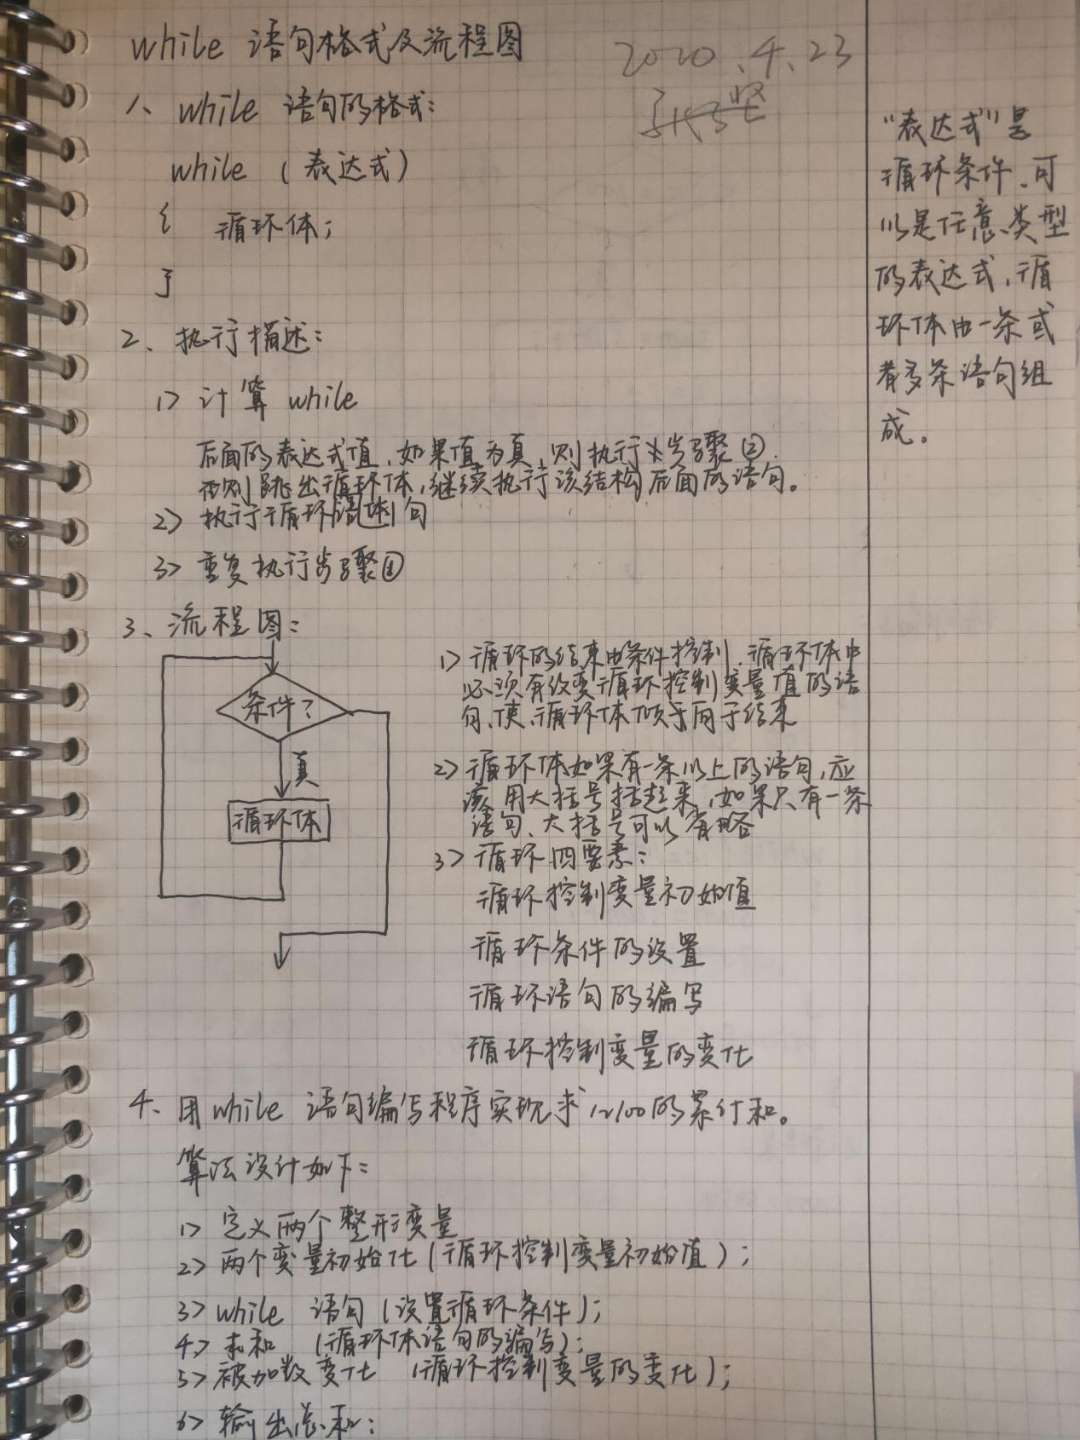 while 语句格式及流程图
2020.4.23
1、while 语句的格式:
while (表达式)
{ 循环体;
}
2、执行描述:
1> 计算 while
后面的表达式值,如果值为真,则执行步骤②,
否则跳出循环体,继续执行该结构后面的语句。
2> 执行循环语句
3> 重复执行步骤①
3、流程图:
条件?
真
循环体
1> 循环的结束由条件控制,循环体中
必须有改变循环控制变量值的语
句,使循环体倾于结束
2> 循环体如果有一条以上的语句,应
该用大括号括起来,如果只有一条
语句、大括号可以省略
3> 循环四要素:
循环控制变量初始值
循环条件的设置
循环语句的编写
循环控制变量的变化
4、用while 语句编写程序实现求1~100的累计和。
算法设计如下:
1> 定义两个整形变量
2> 两个变量初始化(循环控制变量初始值);
3> while 语句(设置循环条件);
4> 求和 (循环体语句的编写);
5> 被加数变化 (循环控制变量的变化);
6> 输出总和;
“表达式”是
循环条件,可
以是任意类型
的表达式,循
环体由一条或
者多条语句组
成。